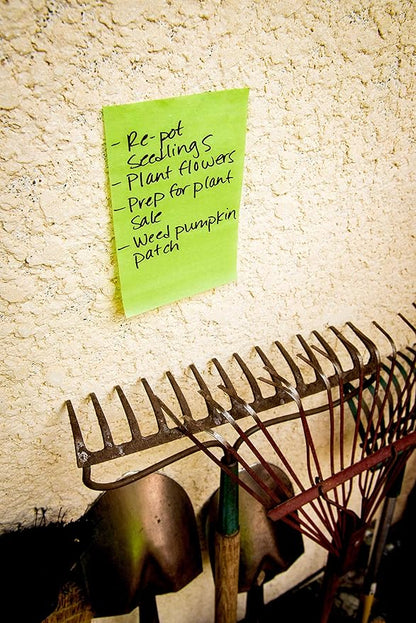 - Re-pot
Seedlings
- Plant flowers
- Prep for plant
Sale
- Weed pumpkin
patch